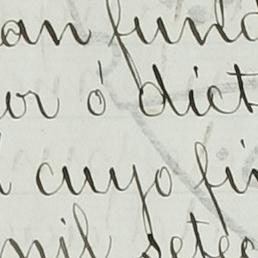 an fund
or ó dict
cuyo fi
mil sete